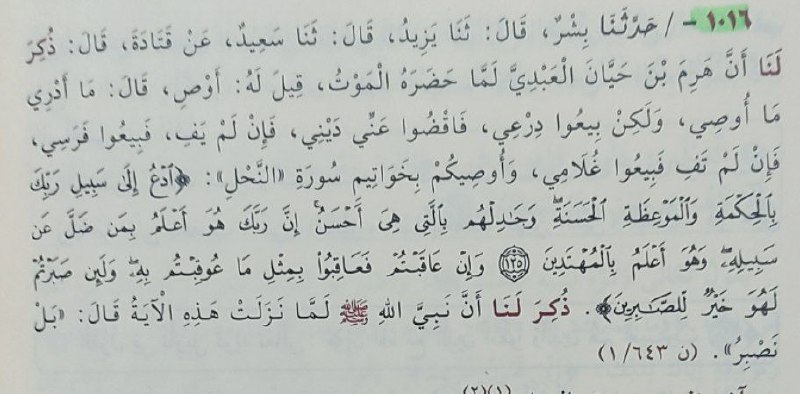 ١٠١٦ - / حَدَّثَنَا بِشْرٌ، قَالَ: ثَنَا يَزِيدُ، قَالَ: ثَنَا سَعِيدٌ، عَنْ قَتَادَةَ، قَالَ: ذُكِرَ
لَنَا أَنَّ هَرِمَ بْنَ حَيَّانَ الْعَبْدِيَّ لَمَّا حَضَرَهُ الْمَوْتُ، قِيلَ لَهُ: أَوْصِ، قَالَ: مَا أَدْرِي
مَا أُوصِي، وَلَكِنْ بِيعُوا دِرْعِي، فَاقْضُوا عَنِّي دَيْنِي، فَإِنْ لَمْ يَفِ، فَبِيعُوا فَرَسِي،
فَإِنْ لَمْ تَفِ فَبِيعُوا غُلَامِي، وَأُوصِيكُمْ بِخَوَاتِيمِ سُورَةِ «النَّحْلِ»: ﴿ٱدْعُ إِلَىٰ سَبِيلِ رَبِّكَ
بِٱلْحِكْمَةِ وَٱلْمَوْعِظَةِ ٱلْحَسَنَةِۖ وَجَٰدِلْهُم بِٱلَّتِى هِىَ أَحْسَنُۚ إِنَّ رَبَّكَ هُوَ أَعْلَمُ بِمَن ضَلَّ عَن
سَبِيلِهِۦۖ وَهُوَ أَعْلَمُ بِٱلْمُهْتَدِينَ ١٢٥ وَإِنْ عَاقَبْتُمْ فَعَاقِبُوا۟ بِمِثْلِ مَا عُوقِبْتُم بِهِۦۖ وَلَئِن صَبَرْتُمْ
لَهُوَ خَيْرٌ لِّلصَّٰبِرِينَ﴾. ذُكِرَ لَنَا أَنَّ نَبِيَّ اللهِ ﷺ لَمَّا نَزَلَتْ هَذِهِ الْآيَةُ قَالَ: «بَلْ
نَصْبِرُ». (ن ١/٦٤٣)